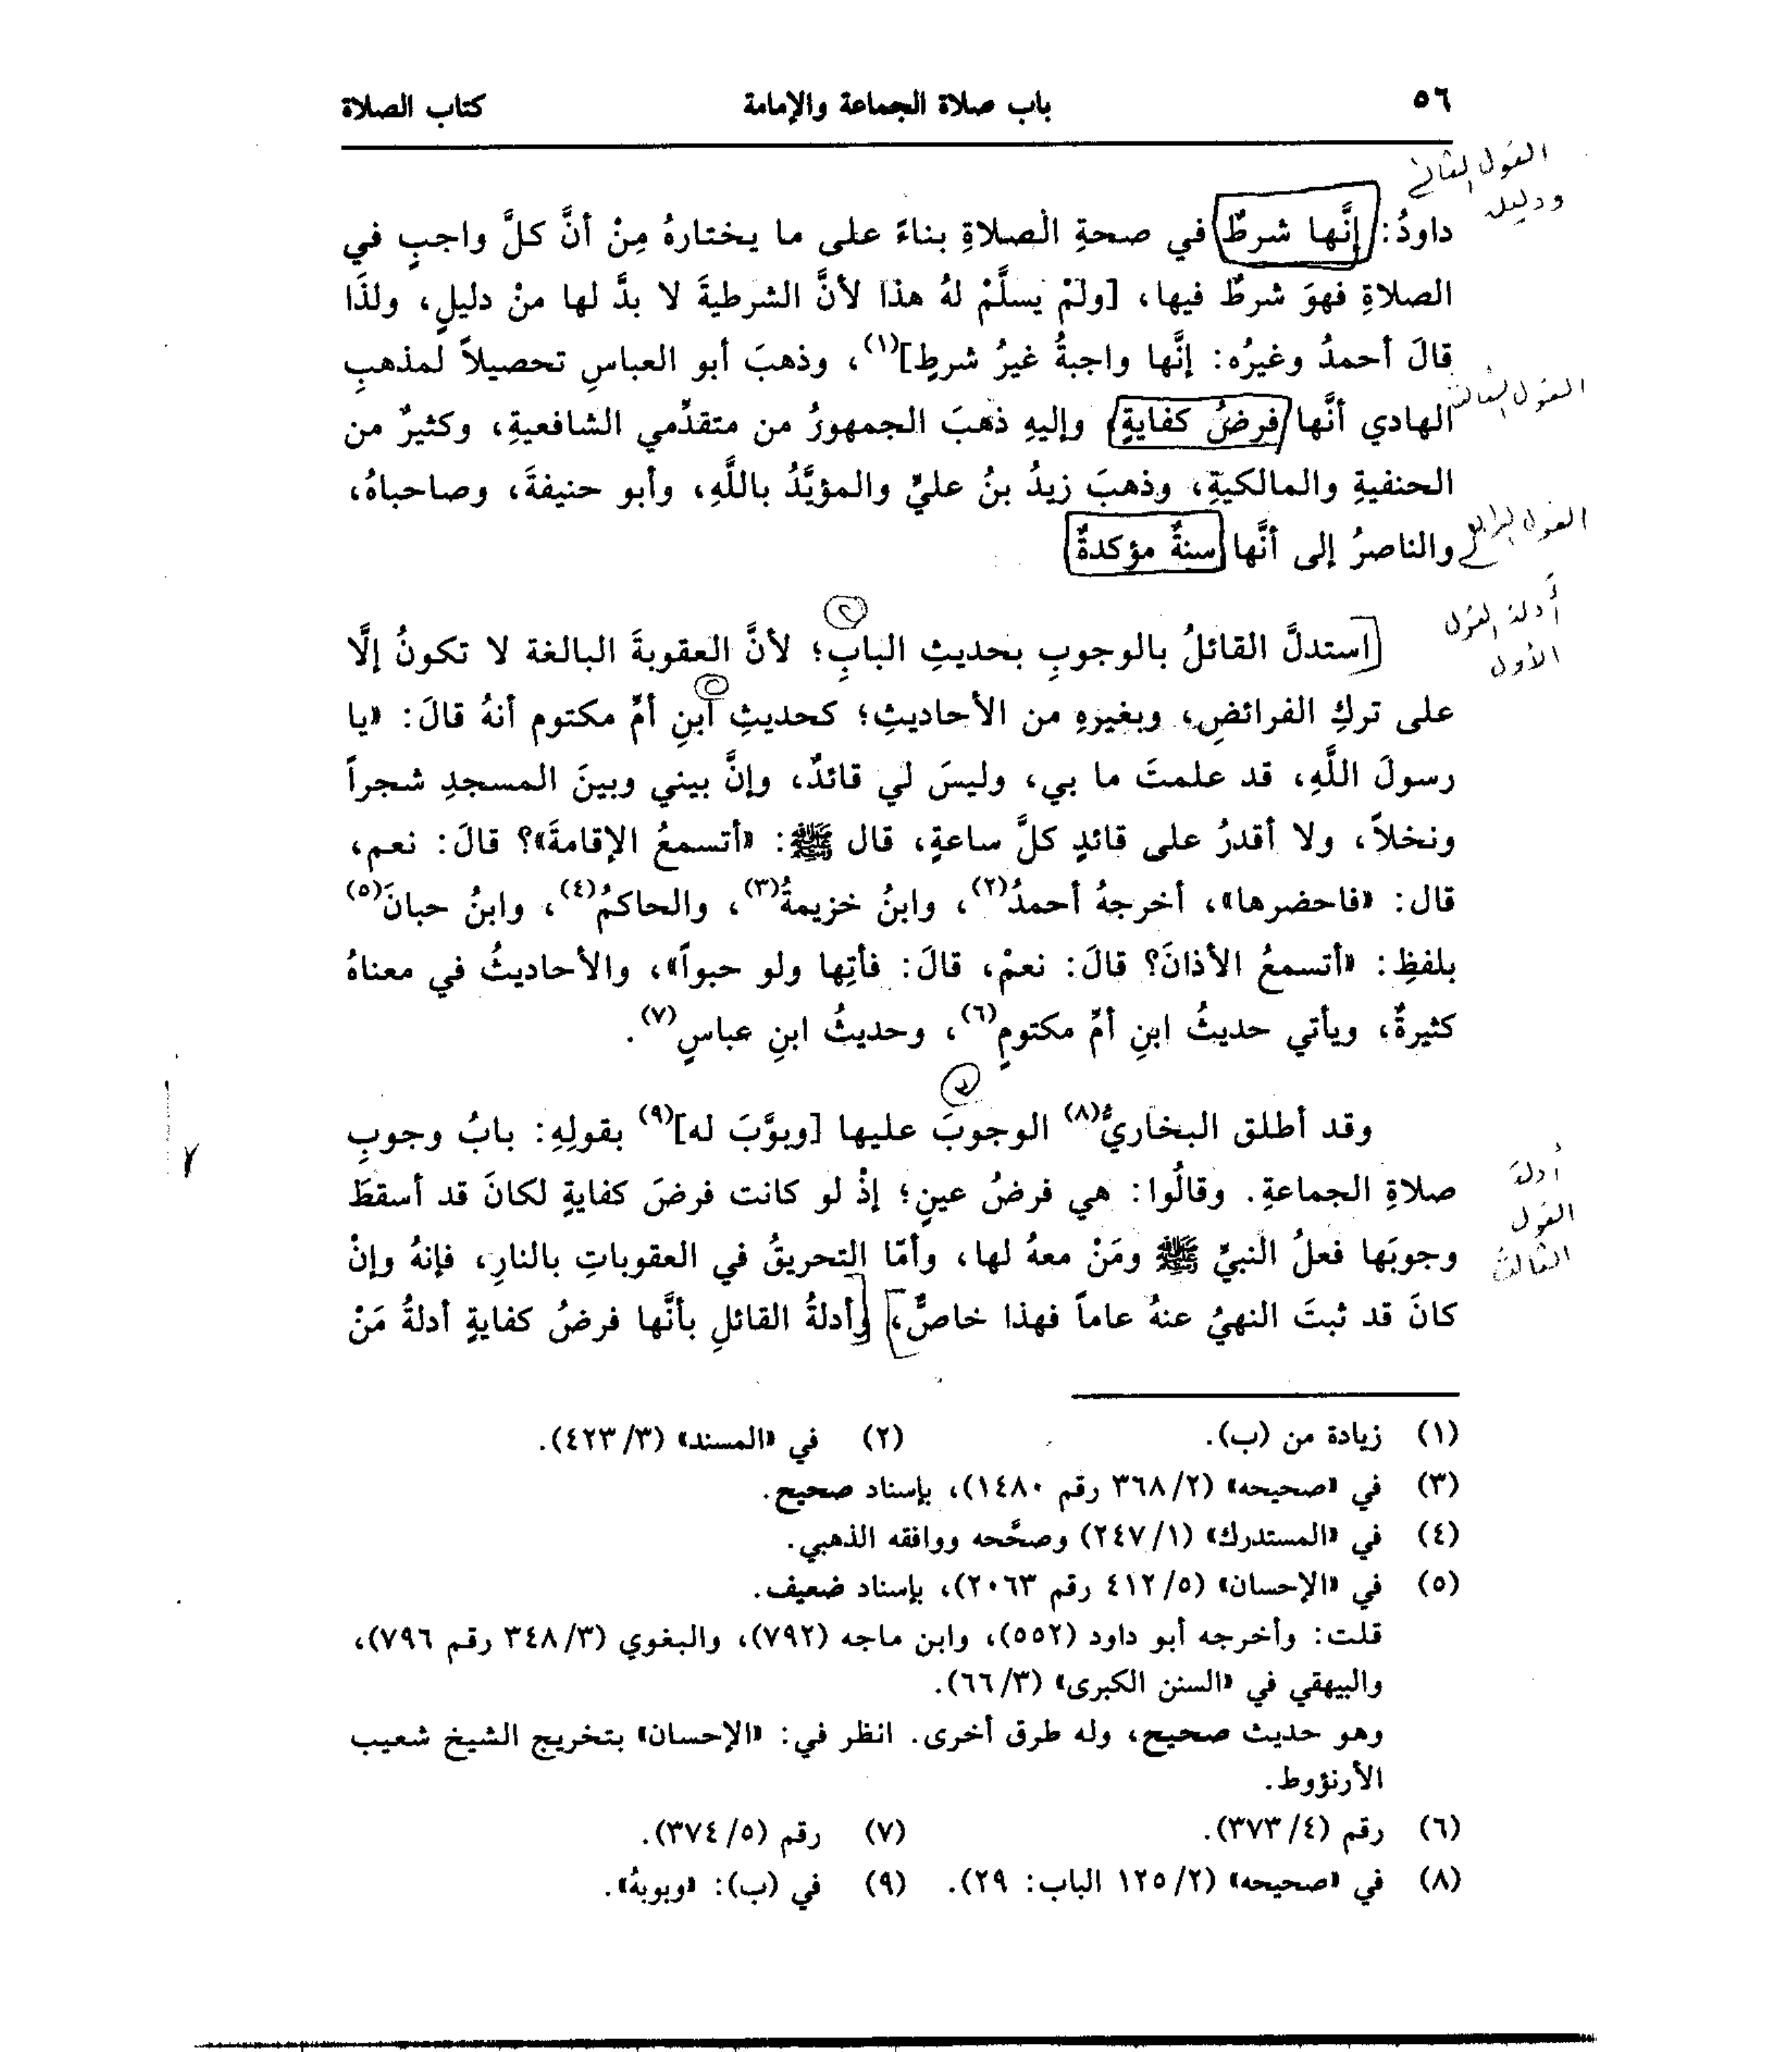 ٥٦ باب صلاة الجماعة والإمامة كتاب الصلاة
القول الثاني
ودليله
داودُ: إنَّها شرطٌ في صحةِ الصلاةِ بناءً على ما يختارهُ مِنْ أنَّ كلَّ واجبٍ في
الصلاةِ فهوَ شرطٌ فيها، [ولَمْ يسلَّمْ لهُ هذا لأنَّ الشرطيةَ لا بدَّ لها منْ دليلٍ، ولذَا
قالَ أحمدُ وغيرُه: إنَّها واجبةُ غيرُ شرطٍ](١)، وذهبَ أبو العباسِ تحصيلاً لمذهبِ
القول الثالث
الهادي أنَّها فرضُ كفايةٍ، وإليهِ ذهبَ الجمهورُ من متقدِّمي الشافعيةِ، وكثيرٌ من
الحنفيةِ والمالكيةِ، وذهبَ زيدُ بنُ عليٍّ والمؤيَّدُ باللَّهِ، وأبو حنيفةَ، وصاحباهُ،
القول الرابع
والناصرُ إلى أنَّها سنةٌ مؤكدةٌ
أدلة القول
الأول
استدلَّ القائلُ بالوجوبِ بحديثِ البابِ؛ لأنَّ العقوبةَ البالغة لا تكونُ إلَّا
على تركِ الفرائضِ، وبغيرهِ من الأحاديثِ؛ كحديثِ ابنِ أمِّ مكتوم أنهُ قالَ: «يا
رسولَ اللَّهِ، قد علمتَ ما بي، وليسَ لي قائدٌ، وإنَّ بيني وبينَ المسجدِ شجراً
ونخلاً، ولا أقدرُ على قائدٍ كلَّ ساعةٍ، قال ﷺ: «أتسمعُ الإقامةَ»؟ قالَ: نعم،
قال: «فاحضرها»، أخرجهُ أحمدُ(٢)، وابنُ خزيمةُ(٣)، والحاكمُ(٤)، وابنُ حبانَ(٥)
بلفظِ: «أتسمعُ الأذانَ؟ قالَ: نعمْ، قالَ: فأتِها ولو حبواً»، والأحاديثُ في معناهُ
كثيرةٌ، ويأتي حديثُ ابنِ أمِّ مكتومٍ(٦)، وحديثُ ابنِ عباسٍ(٧).
وقد أطلق البخاريُّ(٨) الوجوبَ عليها [وبوَّبَ له](٩) بقولِهِ: بابُ وجوبِ
أدلة
القول
الثالث
صلاةِ الجماعةِ. وقالُوا: هي فرضُ عينٍ؛ إذْ لو كانت فرضَ كفايةٍ لكانَ قد أسقطَ
وجوبَها فعلُ النبيِّ ﷺ ومَنْ معهُ لها، وأمّا التحريقُ في العقوباتِ بالنارِ، فإنهُ وإنْ
كانَ قد ثبتَ النهيُ عنهُ عاماً فهذا خاصٌّ، وأدلةُ القائلِ بأنَّها فرضُ كفايةٍ أدلةُ مَنْ
(١) زيادة من (ب). (٢) في «المسند» (٣/ ٤٢٣).
(٣) في «صحيحه» (٢/ ٣٦٨ رقم ١٤٨٠)، بإسناد صحيح.
(٤) في «المستدرك» (١/ ٢٤٧) وصحَّحه ووافقه الذهبي.
(٥) في «الإحسان» (٥/ ٤١٢ رقم ٢٠٦٣)، بإسناد ضعيف.
قلت: وأخرجه أبو داود (٥٥٢)، وابن ماجه (٧٩٢)، والبغوي (٣/ ٣٤٨ رقم ٧٩٦)،
والبيهقي في «السنن الكبرى» (٣/ ٦٦).
وهو حديث صحيح، وله طرق أخرى. انظر في: «الإحسان» بتخريج الشيخ شعيب
الأرنؤوط.
(٦) رقم (٤/ ٣٧٣). (٧) رقم (٥/ ٣٧٤).
(٨) في «صحيحه» (٢/ ١٢٥ الباب: ٢٩). (٩) في (ب): «وبوبهُ».